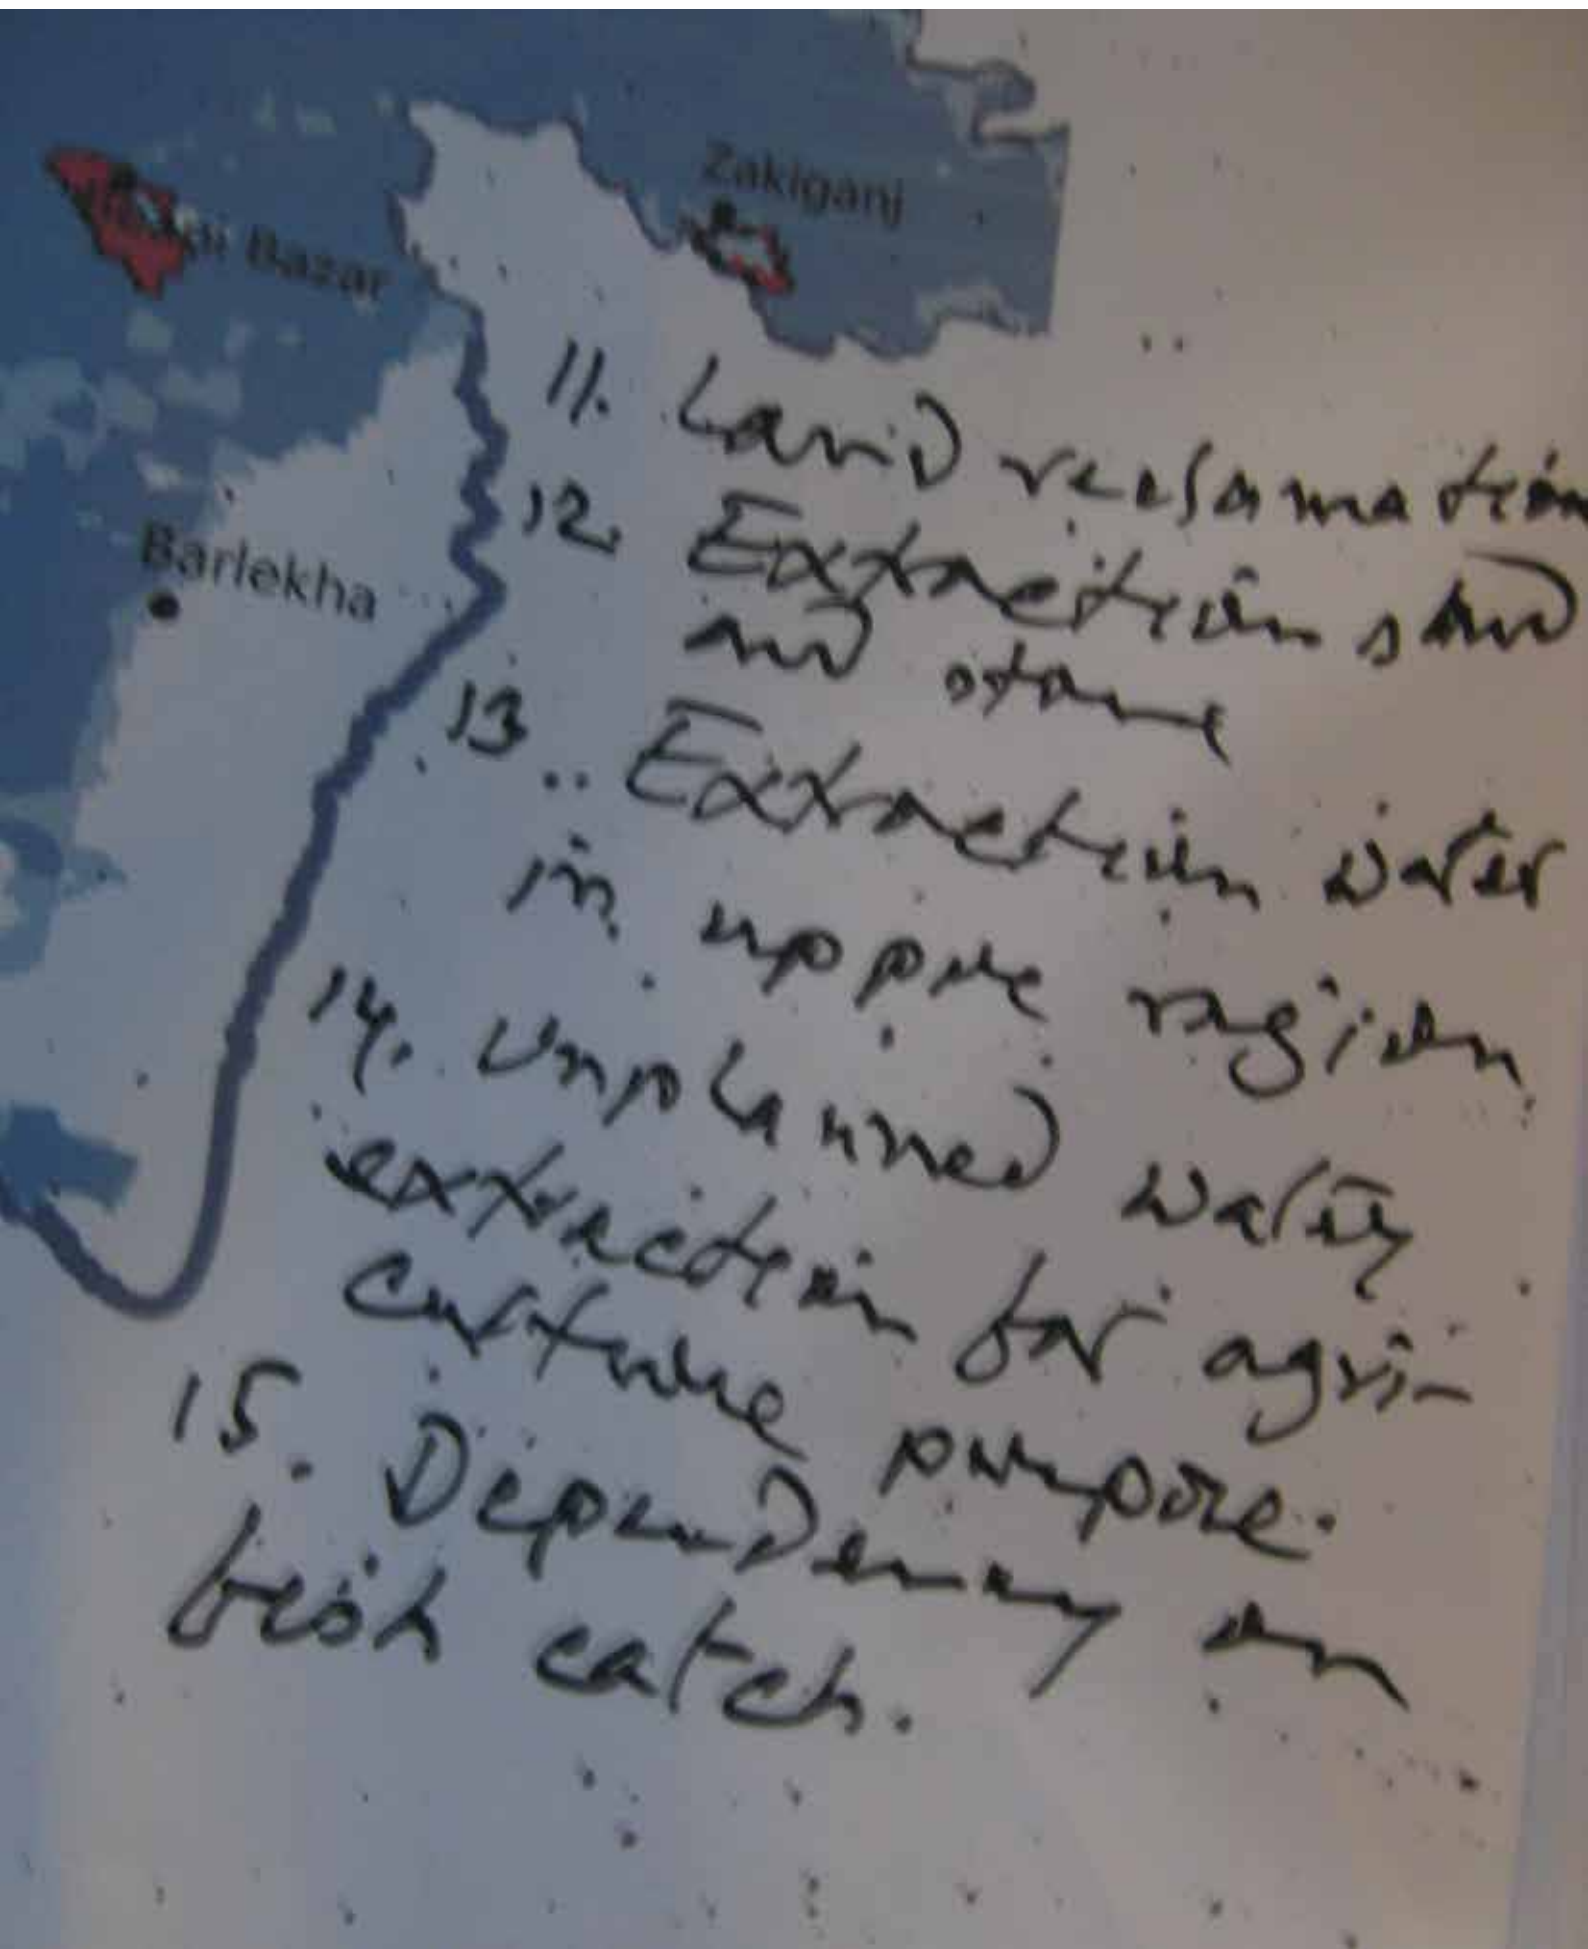 Zakiganj
Bazar
Barlekha
11. Land reclamation
12. Extraction sand
and stone
13. Extraction water
in uppre region
14. Unplanned water
extraction for agri-
culture purpose.
15. Dependency on
fish catch.